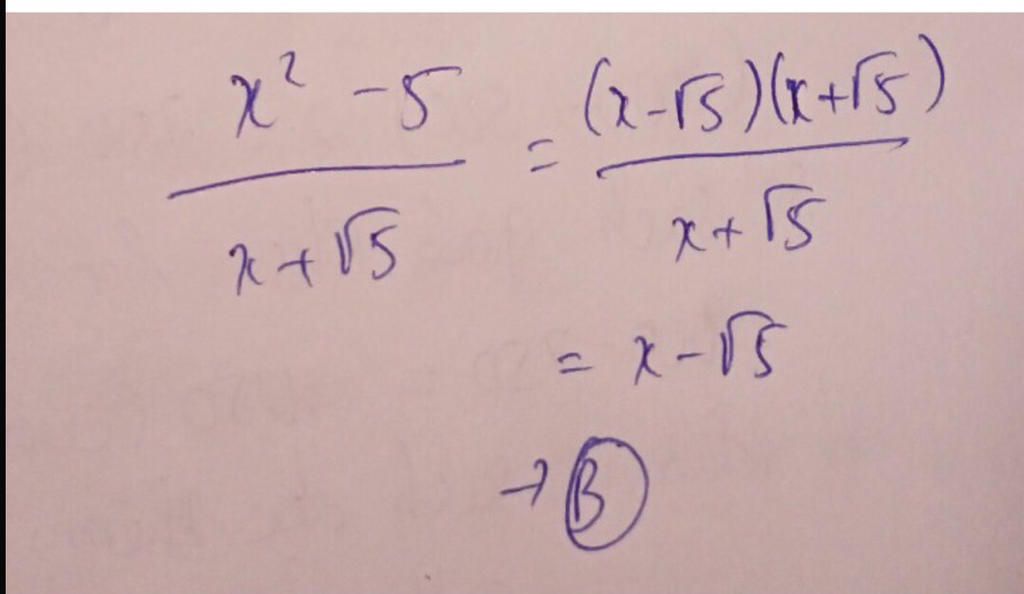 x² - 5 / x + √5 = (x - √5)(x + √5) / x + √5
= x - √5
→ B